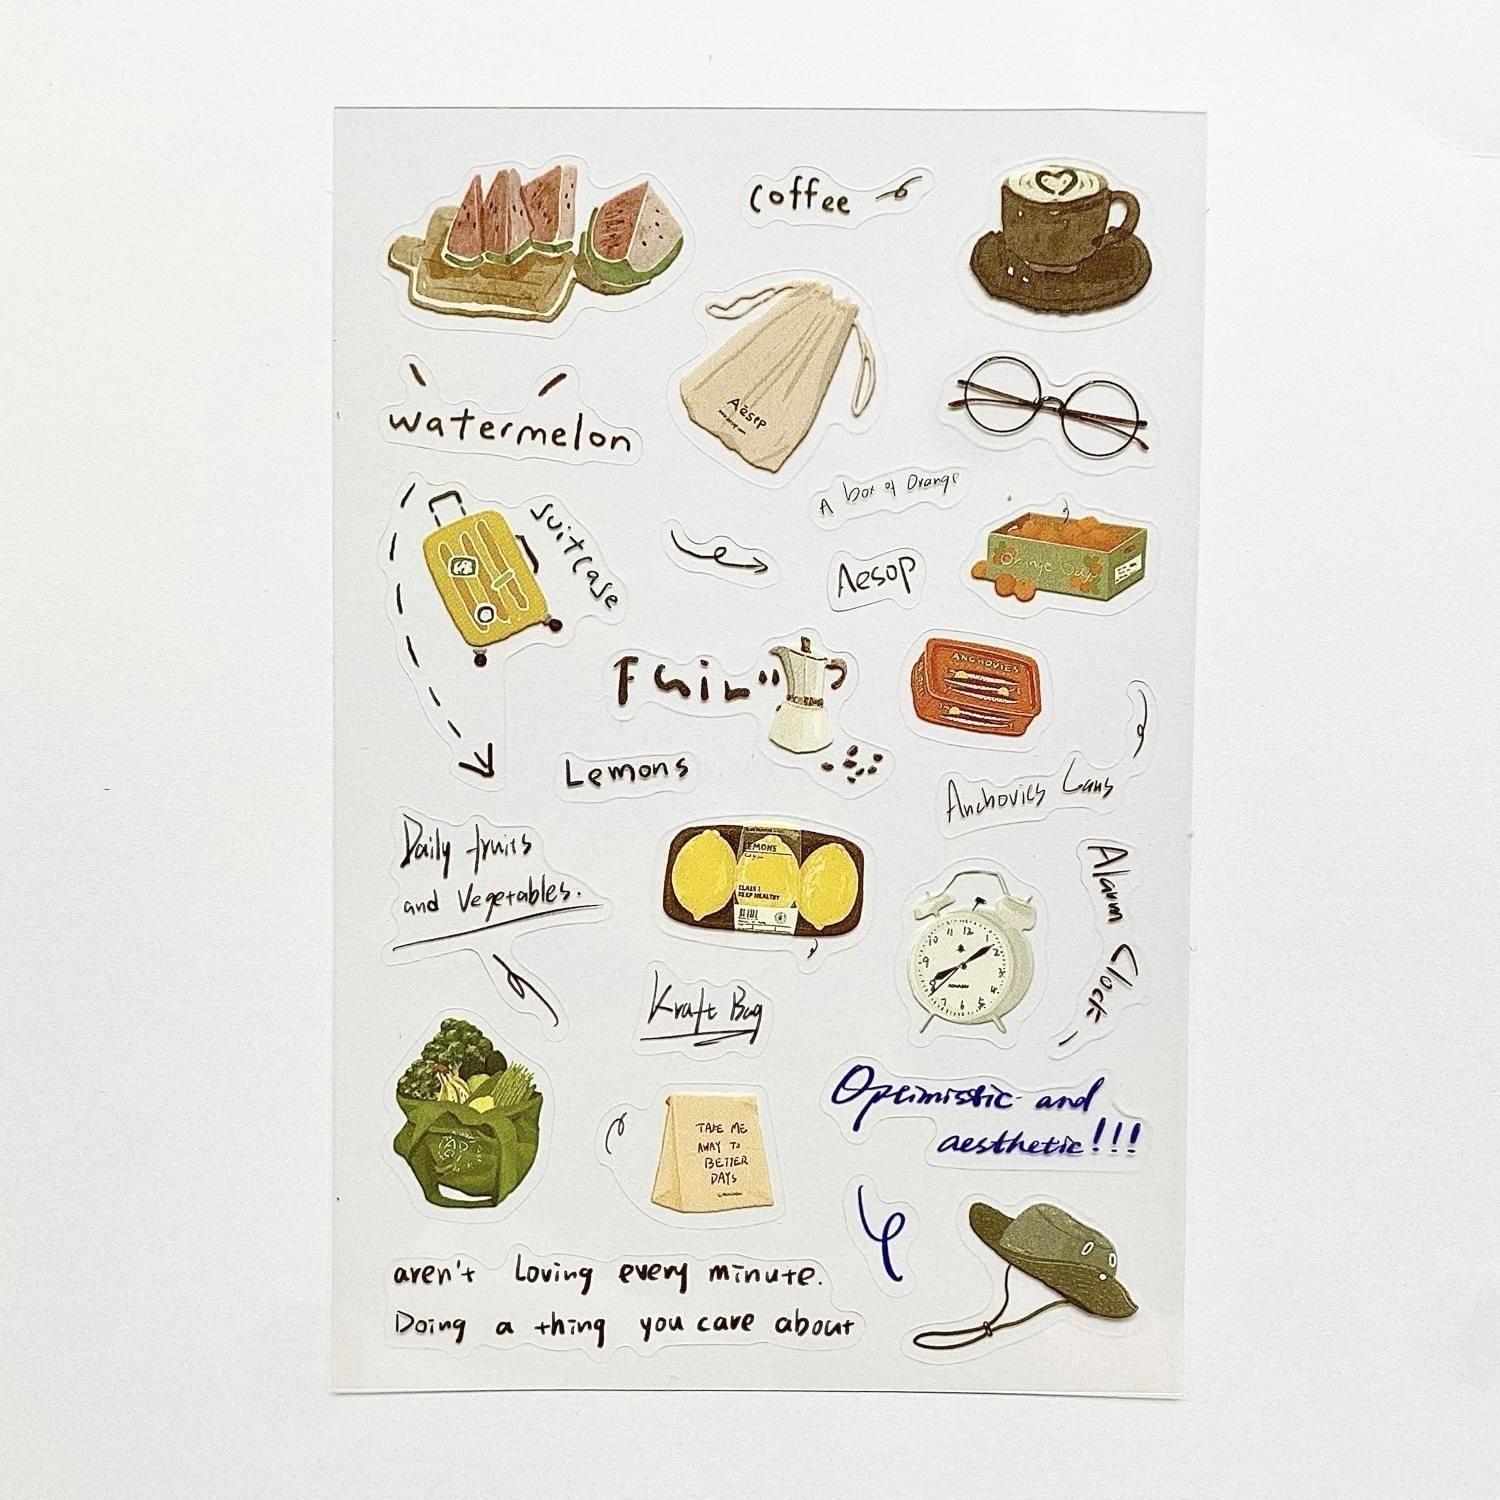 coffee
watermelon
Aēsop
A box of Orange
suitcase
Aesop
Orange
ANCHOVIES
Lemons
Anchovies Cans
Daily fruits
and Vegetables.
LEMONS
CLASS 1
KEEP HEALTHY
Alarm Clock
12
1
2
3
4
5
6
7
8
9
10
11
Kraft Bag
Optimistic and
aesthetic!!!
TAKE ME
AWAY TO
BETTER
DAYS
aren't Loving every minute.
Doing a thing you care about